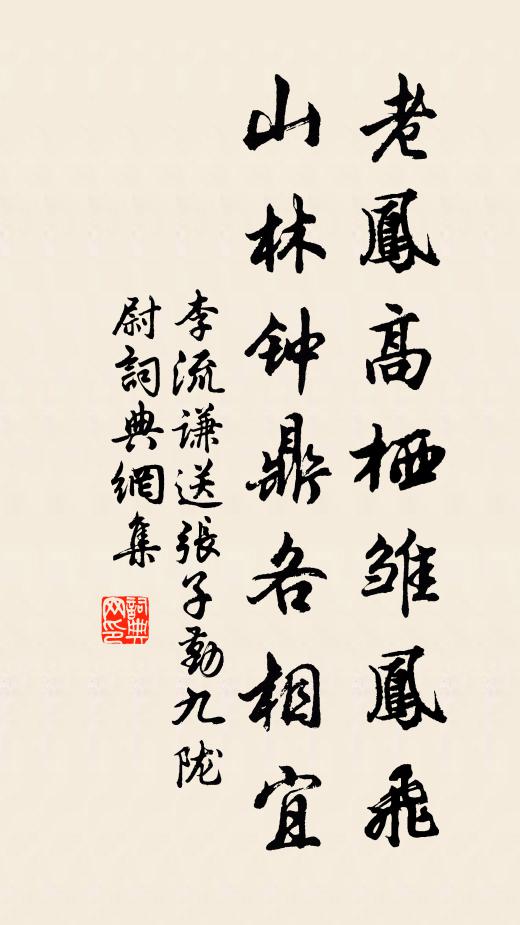 老鳳高栖雏鳳飛
山林钟鼎各相宜
李流谦送張子勤九陇
尉詞典網集
詞典网印